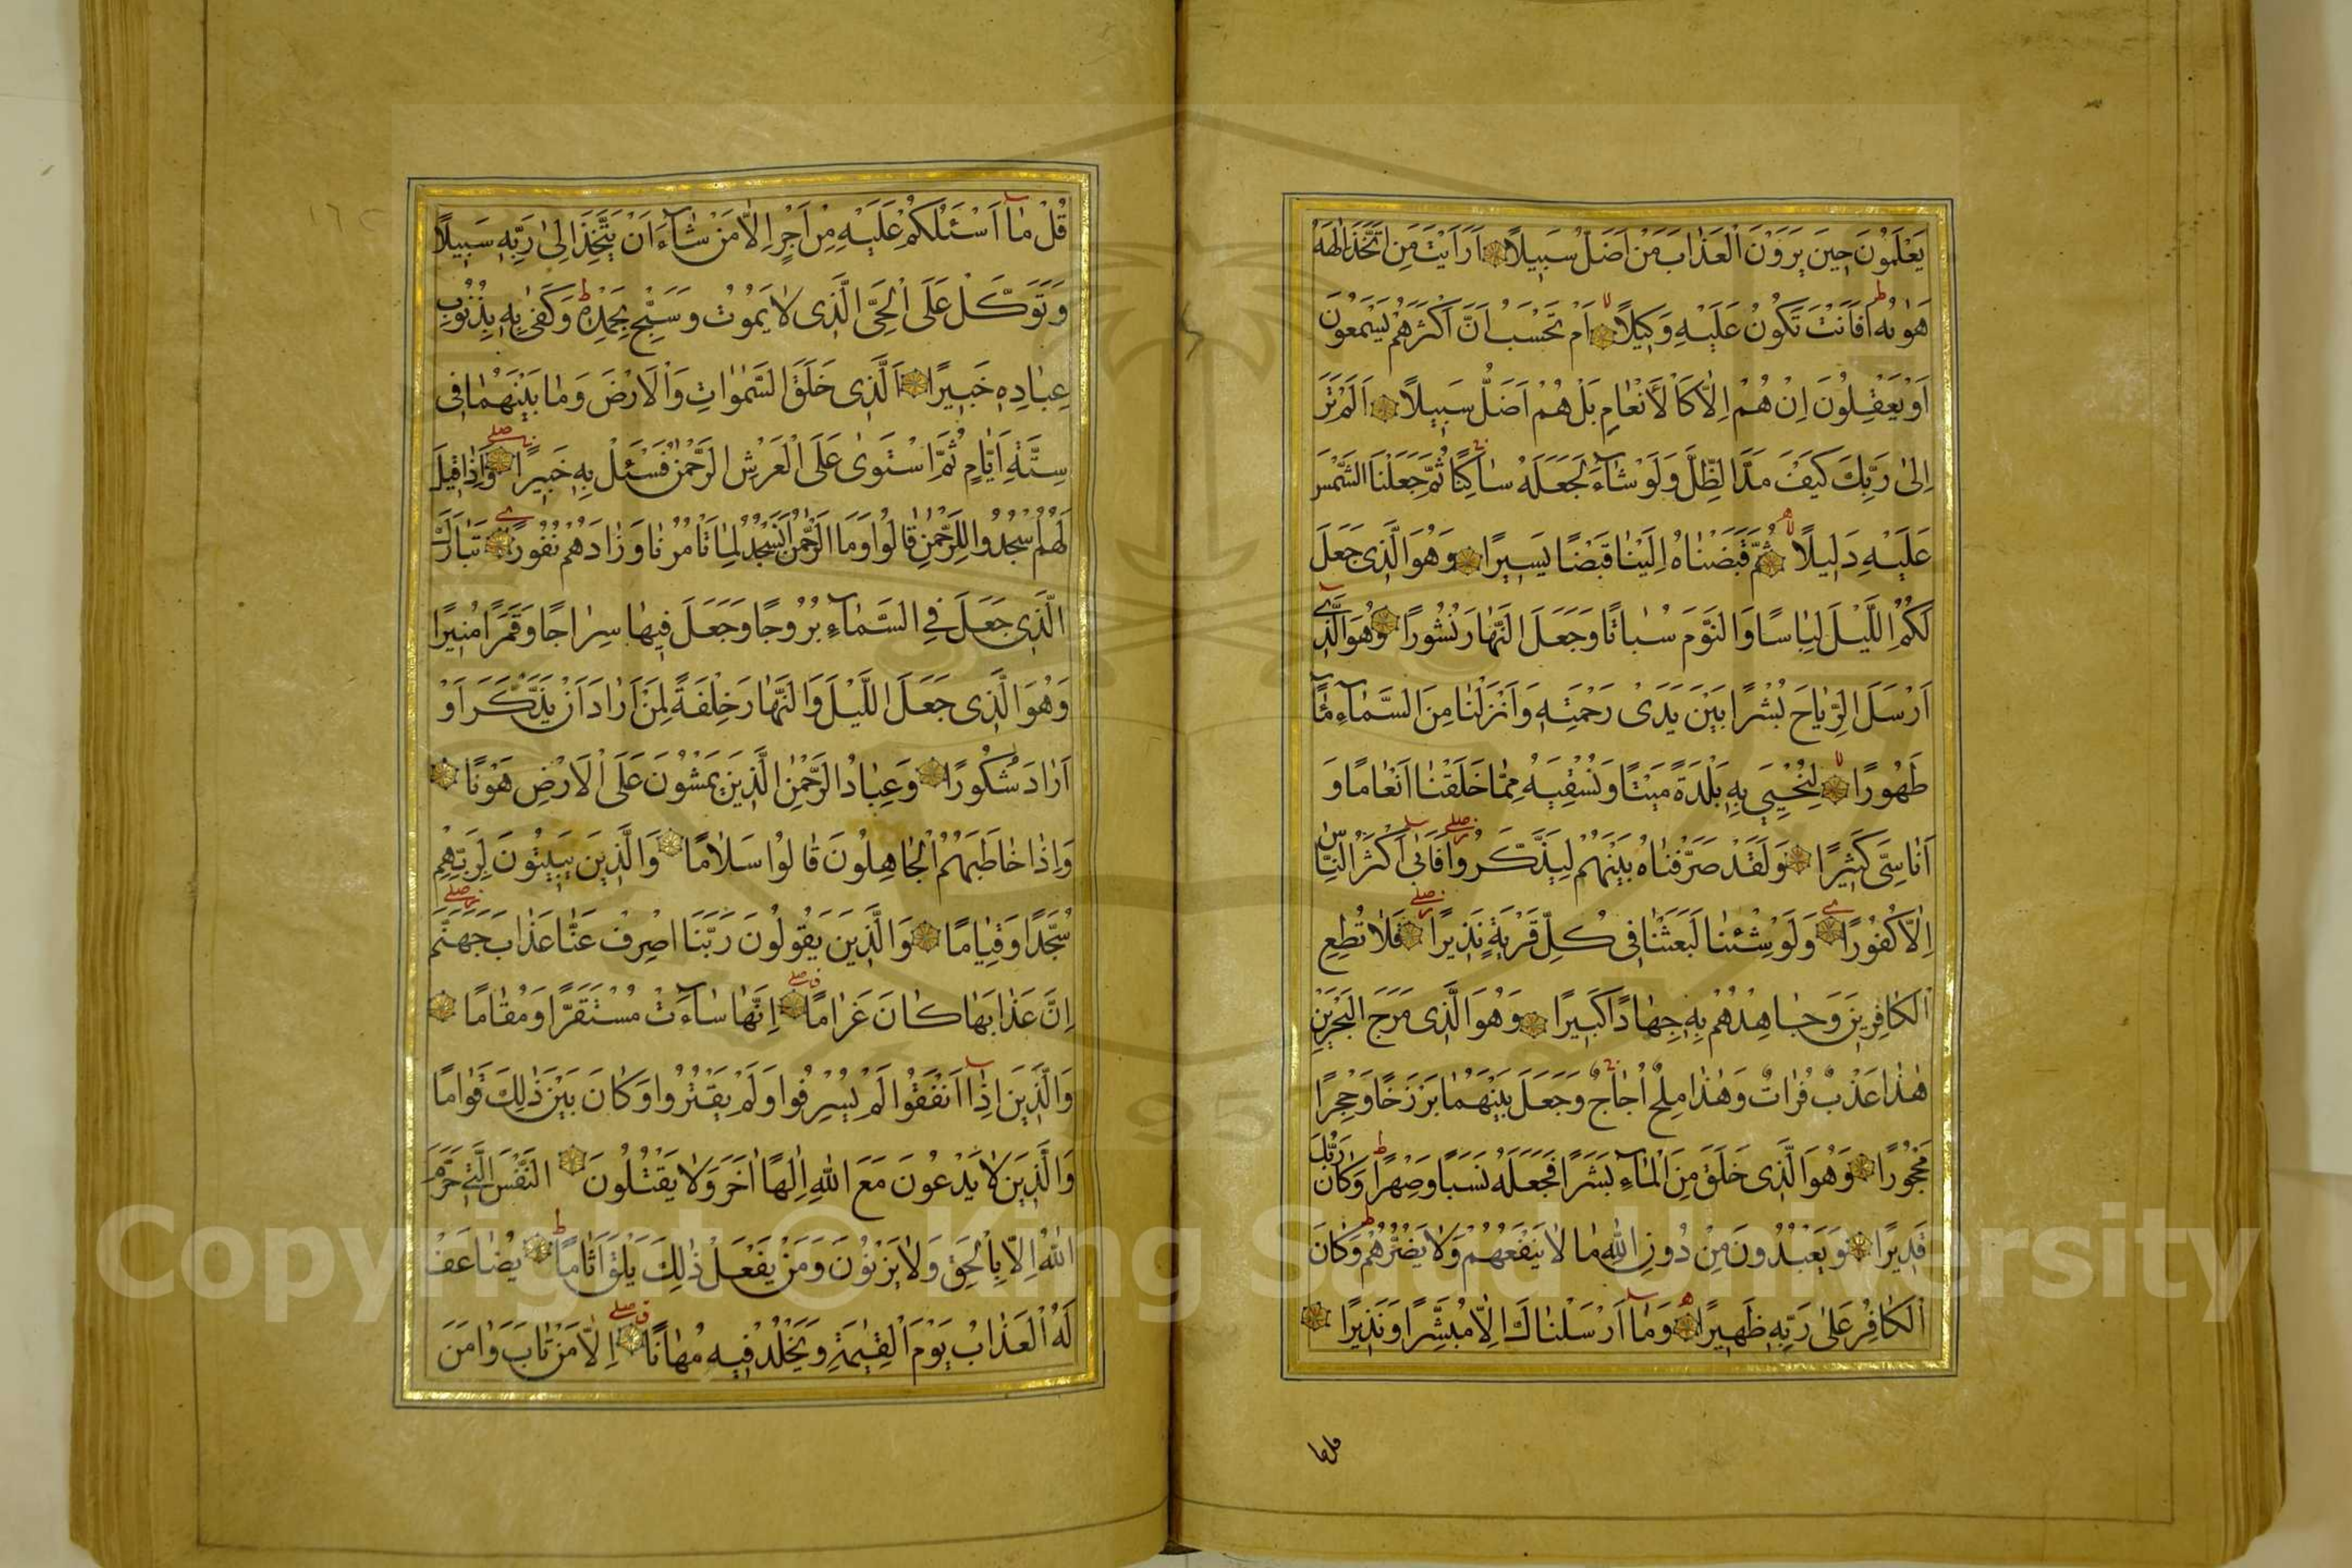 يَعْلَمُونَ حِينَ يَرَوْنَ الْعَذَابَ مَنْ اَضَلُّ سَبِيلًا اَرَاَيْتَ مَنِ اتَّخَذَ اِلٰهَهُ
هَوٰيهُ اَفَاَنْتَ تَكُونُ عَلَيْهِ وَكِيلًا اَمْ تَحْسَبُ اَنَّ اَكْثَرَهُمْ يَسْمَعُونَ
اَوْ يَعْقِلُونَ اِنْ هُمْ اِلَّا كَالْاَنْعَامِ بَلْ هُمْ اَضَلُّ سَبِيلًا اَلَمْ تَرَ
اِلٰى رَبِّكَ كَيْفَ مَدَّ الظِّلَّ وَلَوْ شَآءَ لَجَعَلَهُ سَاكِنًا ثُمَّ جَعَلْنَا الشَّمْسَ
عَلَيْهِ دَلِيلًا ثُمَّ قَبَضْنَاهُ اِلَيْنَا قَبْضًا يَسِيرًا وَهُوَ الَّذِى جَعَلَ
لَكُمُ اللَّيْلَ لِبَاسًا وَالنَّوْمَ سُبَاتًا وَجَعَلَ النَّهَارَ نُشُورًا وَهُوَ الَّذِى
اَرْسَلَ الرِّيَاحَ بُشْرًا بَيْنَ يَدَىْ رَحْمَتِهِ وَاَنْزَلْنَا مِنَ السَّمَآءِ مَآءً
طَهُورًا لِنُحْيِىَ بِهِ بَلْدَةً مَيْتًا وَنُسْقِيَهُ مِمَّا خَلَقْنَا اَنْعَامًا وَ
اَنَاسِىَّ كَثِيرًا وَلَقَدْ صَرَّفْنَاهُ بَيْنَهُمْ لِيَذَّكَّرُوا فَاَبٰى اَكْثَرُ النَّاسِ
اِلَّا كُفُورًا وَلَوْ شِئْنَا لَبَعَثْنَا فِى كُلِّ قَرْيَةٍ نَذِيرًا فَلَا تُطِعِ
الْكَافِرِينَ وَجَاهِدْهُمْ بِهِ جِهَادًا كَبِيرًا وَهُوَ الَّذِى مَرَجَ الْبَحْرَيْنِ
هٰذَا عَذْبٌ فُرَاتٌ وَهٰذَا مِلْحٌ اُجَاجٌ وَجَعَلَ بَيْنَهُمَا بَرْزَخًا وَحِجْرًا
مَحْجُورًا وَهُوَ الَّذِى خَلَقَ مِنَ الْمَآءِ بَشَرًا فَجَعَلَهُ نَسَبًا وَصِهْرًا وَكَانَ رَبُّكَ
قَدِيرًا وَيَعْبُدُونَ مِنْ دُونِ اللّٰهِ مَا لَا يَنْفَعُهُمْ وَلَا يَضُرُّهُمْ وَكَانَ
الْكَافِرُ عَلٰى رَبِّهِ ظَهِيرًا وَمَا اَرْسَلْنَاكَ اِلَّا مُبَشِّرًا وَنَذِيرًا
قل ما
قُلْ مَا اَسْـَٔلُكُمْ عَلَيْهِ مِنْ اَجْرٍ اِلَّا مَنْ شَآءَ اَنْ يَتَّخِذَ اِلٰى رَبِّهِ سَبِيلًا
وَتَوَكَّلْ عَلَى الْحَىِّ الَّذِى لَا يَمُوتُ وَسَبِّحْ بِحَمْدِهِ وَكَفٰى بِهِ بِذُنُوبِ
عِبَادِهِ خَبِيرًا اَلَّذِى خَلَقَ السَّمٰوَاتِ وَالْاَرْضَ وَمَا بَيْنَهُمَا فِى
سِتَّةِ اَيَّامٍ ثُمَّ اسْتَوٰى عَلَى الْعَرْشِ الرَّحْمٰنُ فَسْـَٔلْ بِهِ خَبِيرًا وَاِذَا قِيلَ
لَهُمُ اسْجُدُوا لِلرَّحْمٰنِ قَالُوا وَمَا الرَّحْمٰنُ اَنَسْجُدُ لِمَا تَاْمُرُنَا وَزَادَهُمْ نُفُورًا تَبَارَكَ
الَّذِى جَعَلَ فِى السَّمَآءِ بُرُوجًا وَجَعَلَ فِيهَا سِرَاجًا وَقَمَرًا مُنِيرًا
وَهُوَ الَّذِى جَعَلَ اللَّيْلَ وَالنَّهَارَ خِلْفَةً لِمَنْ اَرَادَ اَنْ يَذَّكَّرَ اَوْ
اَرَادَ شُكُورًا وَعِبَادُ الرَّحْمٰنِ الَّذِينَ يَمْشُونَ عَلَى الْاَرْضِ هَوْنًا
وَاِذَا خَاطَبَهُمُ الْجَاهِلُونَ قَالُوا سَلَامًا وَالَّذِينَ يَبِيتُونَ لِرَبِّهِمْ
سُجَّدًا وَقِيَامًا وَالَّذِينَ يَقُولُونَ رَبَّنَا اصْرِفْ عَنَّا عَذَابَ جَهَنَّمَ
اِنَّ عَذَابَهَا كَانَ غَرَامًا اِنَّهَا سَآءَتْ مُسْتَقَرًّا وَمُقَامًا
وَالَّذِينَ اِذَا اَنْفَقُوا لَمْ يُسْرِفُوا وَلَمْ يَقْتُرُوا وَكَانَ بَيْنَ ذٰلِكَ قَوَامًا
وَالَّذِينَ لَا يَدْعُونَ مَعَ اللّٰهِ اِلٰهًا اٰخَرَ وَلَا يَقْتُلُونَ النَّفْسَ الَّتِى حَرَّمَ
اللّٰهُ اِلَّا بِالْحَقِّ وَلَا يَزْنُونَ وَمَنْ يَفْعَلْ ذٰلِكَ يَلْقَ اَثَامًا يُضَاعَفْ
لَهُ الْعَذَابُ يَوْمَ الْقِيٰمَةِ وَيَخْلُدْ فِيهِ مُهَانًا اِلَّا مَنْ تَابَ وَاٰمَنَ
Copyright © King Saud University